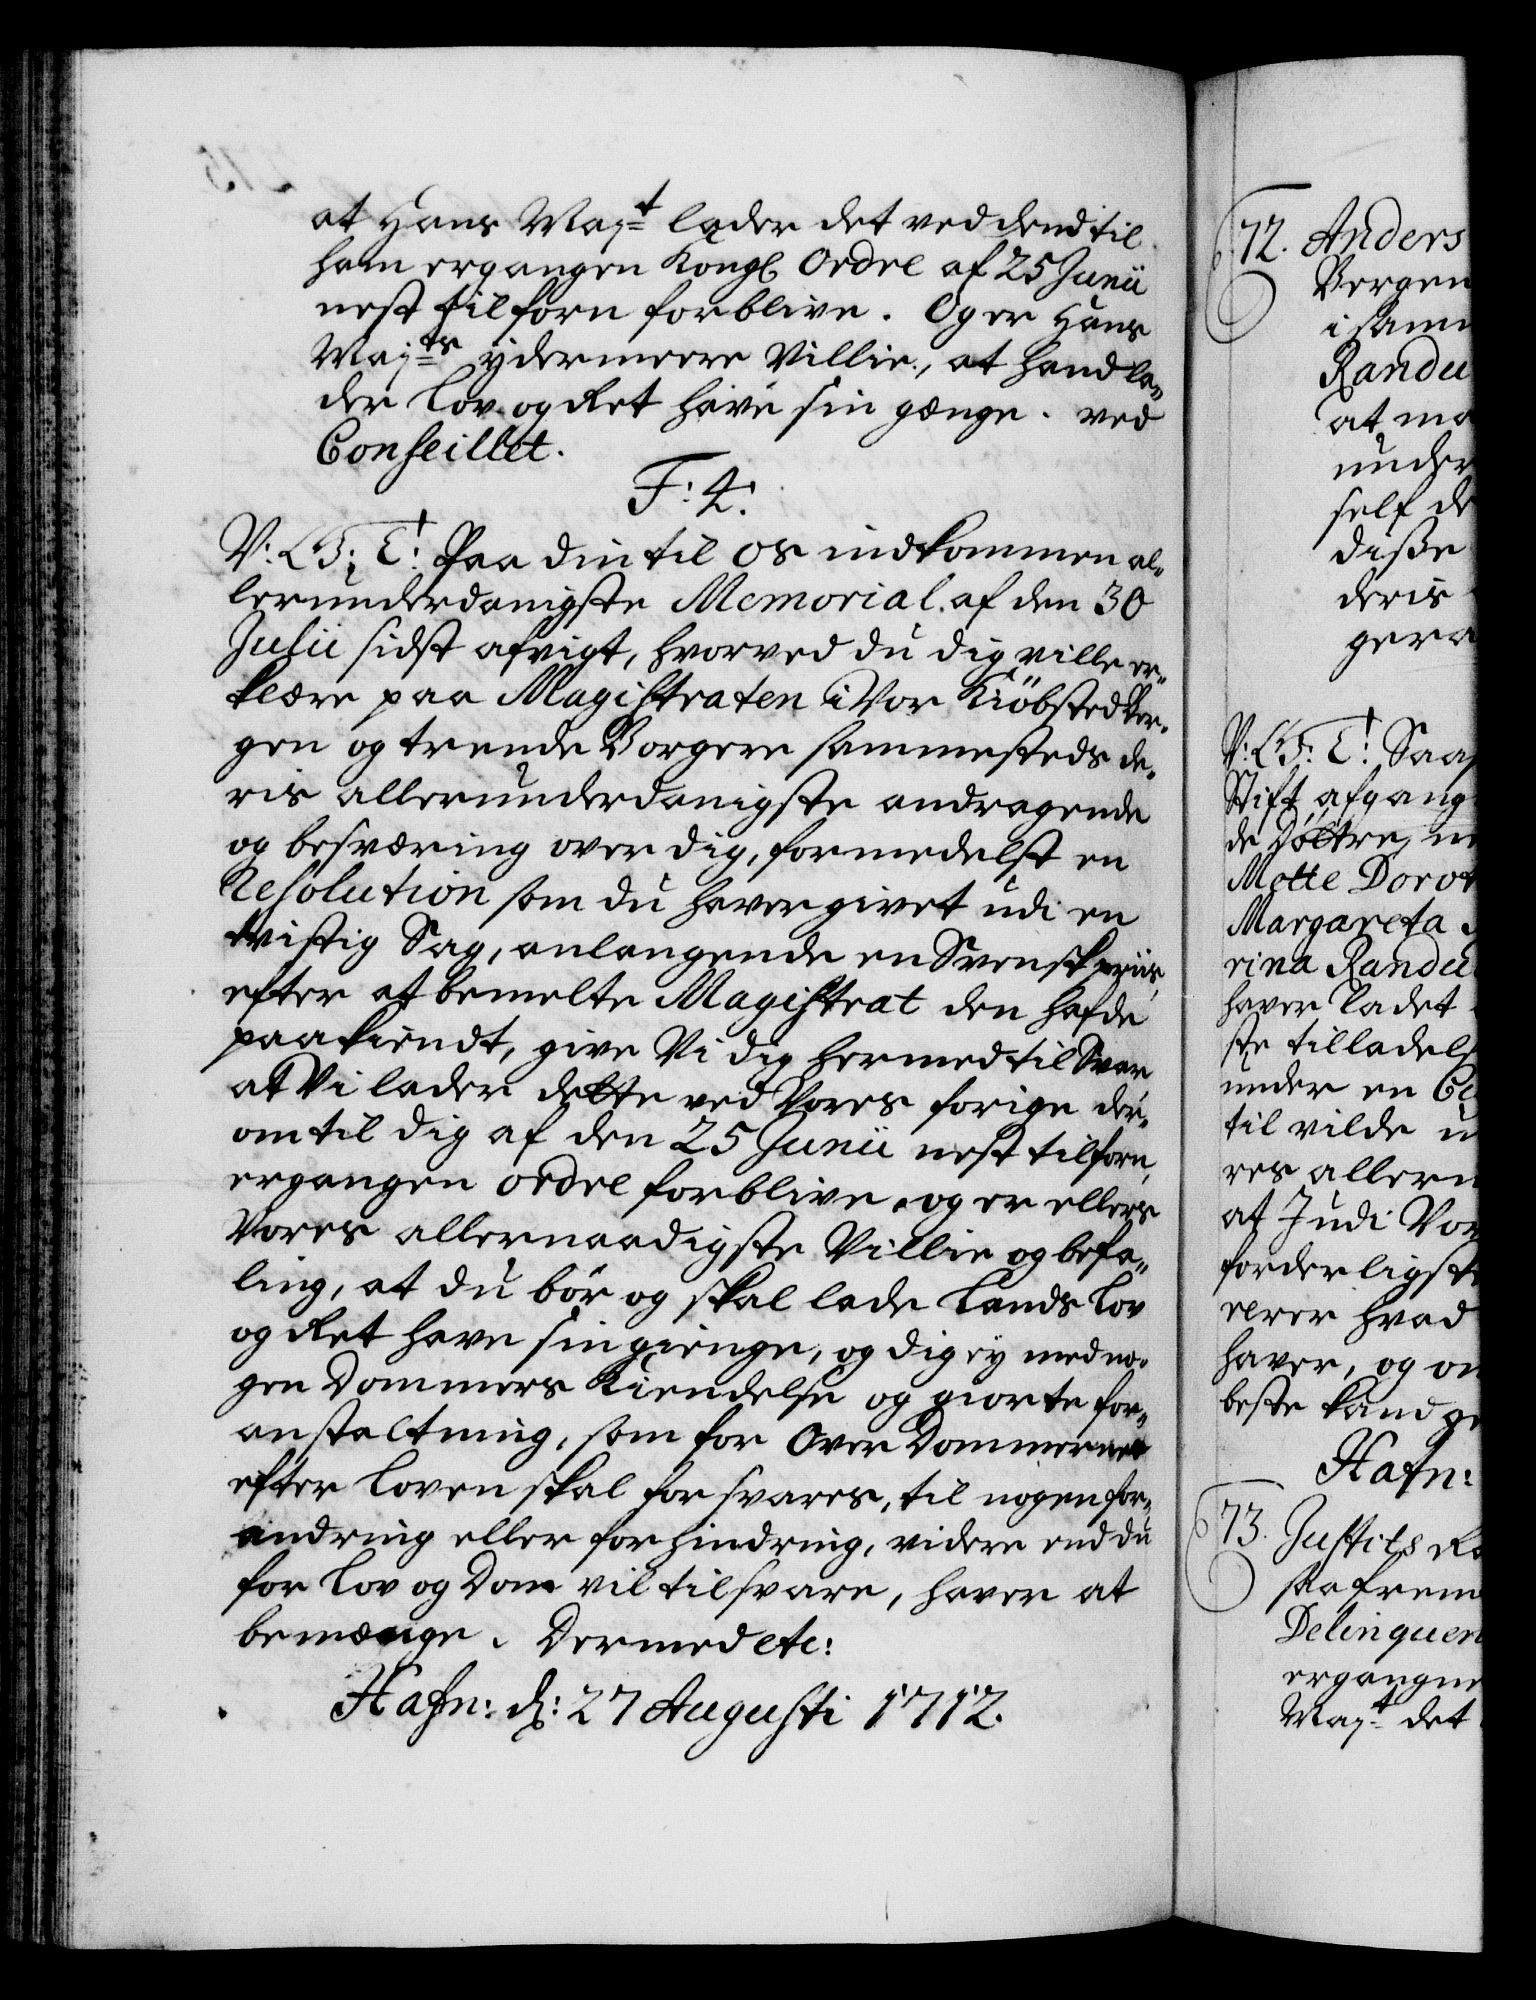 at Hans Maj:t lader det ved dend til
ham ergangen Kongl Ordre af 25 Junii
nest tilforn forblive. Og er Hans
Maj:ts ydermeere Villie, at hand la-
der Lov og Ret have sin gænge. ved
Conseillet.
F: 4:
V: G: T: Paa din til os indkommen al-
lerunderdanigste Memorial af den 30
Julii sidst afvigt, hvorved du dig ville er-
klære paa Magistraten i Vor Kiöbsted Ber-
gen og trende Borgere sammesteds de-
ris allerunderdanigste andragende
og besværing over dig, formedelst en
Resolution som du haver givet udi en
tvistig Sag, anlangende en Svensk priis,
efter at bemelte Magistrat den hafde
paakiendt, give Vi dig hermed til Svar
at Vi lader dette ved Vores forige der-
om til dig af den 25 Junii nest tilforn,
ergangen ordre forblive. og er ellers
Vores allernaadigste Villie og befa-
ling, at du bör og skal lade Lands Lov
og Ret have sin gienge, og dig ey med no-
gen Dommers Kiendelse og giorte for-
anstaltning, som for Over Dommerne
efter Loven skal forsvares, til nogen for-
andring eller forhindring, videre end du
for Lov og Dom vil tilsvare, haver at
bemænge. Dermed etc:
Hafn: d: 27 Augusti 1712.
72. Anders
Bergen
i samm
Randu
at ma
under
self de
disse
deris
gera
V: G: T: Saa
Stift afgang
de Döttre, n
Mette Dorot
Margareta
rina Randu
haver ladet
ste tilladels
under en
til vilde u
res allern
at Judi Vor
forderligst
erer hvad
haver, og on
beste kand ge
Hafn:
73. Justits Ra
paa frem
Delinquen
ergangne
Maj:t det